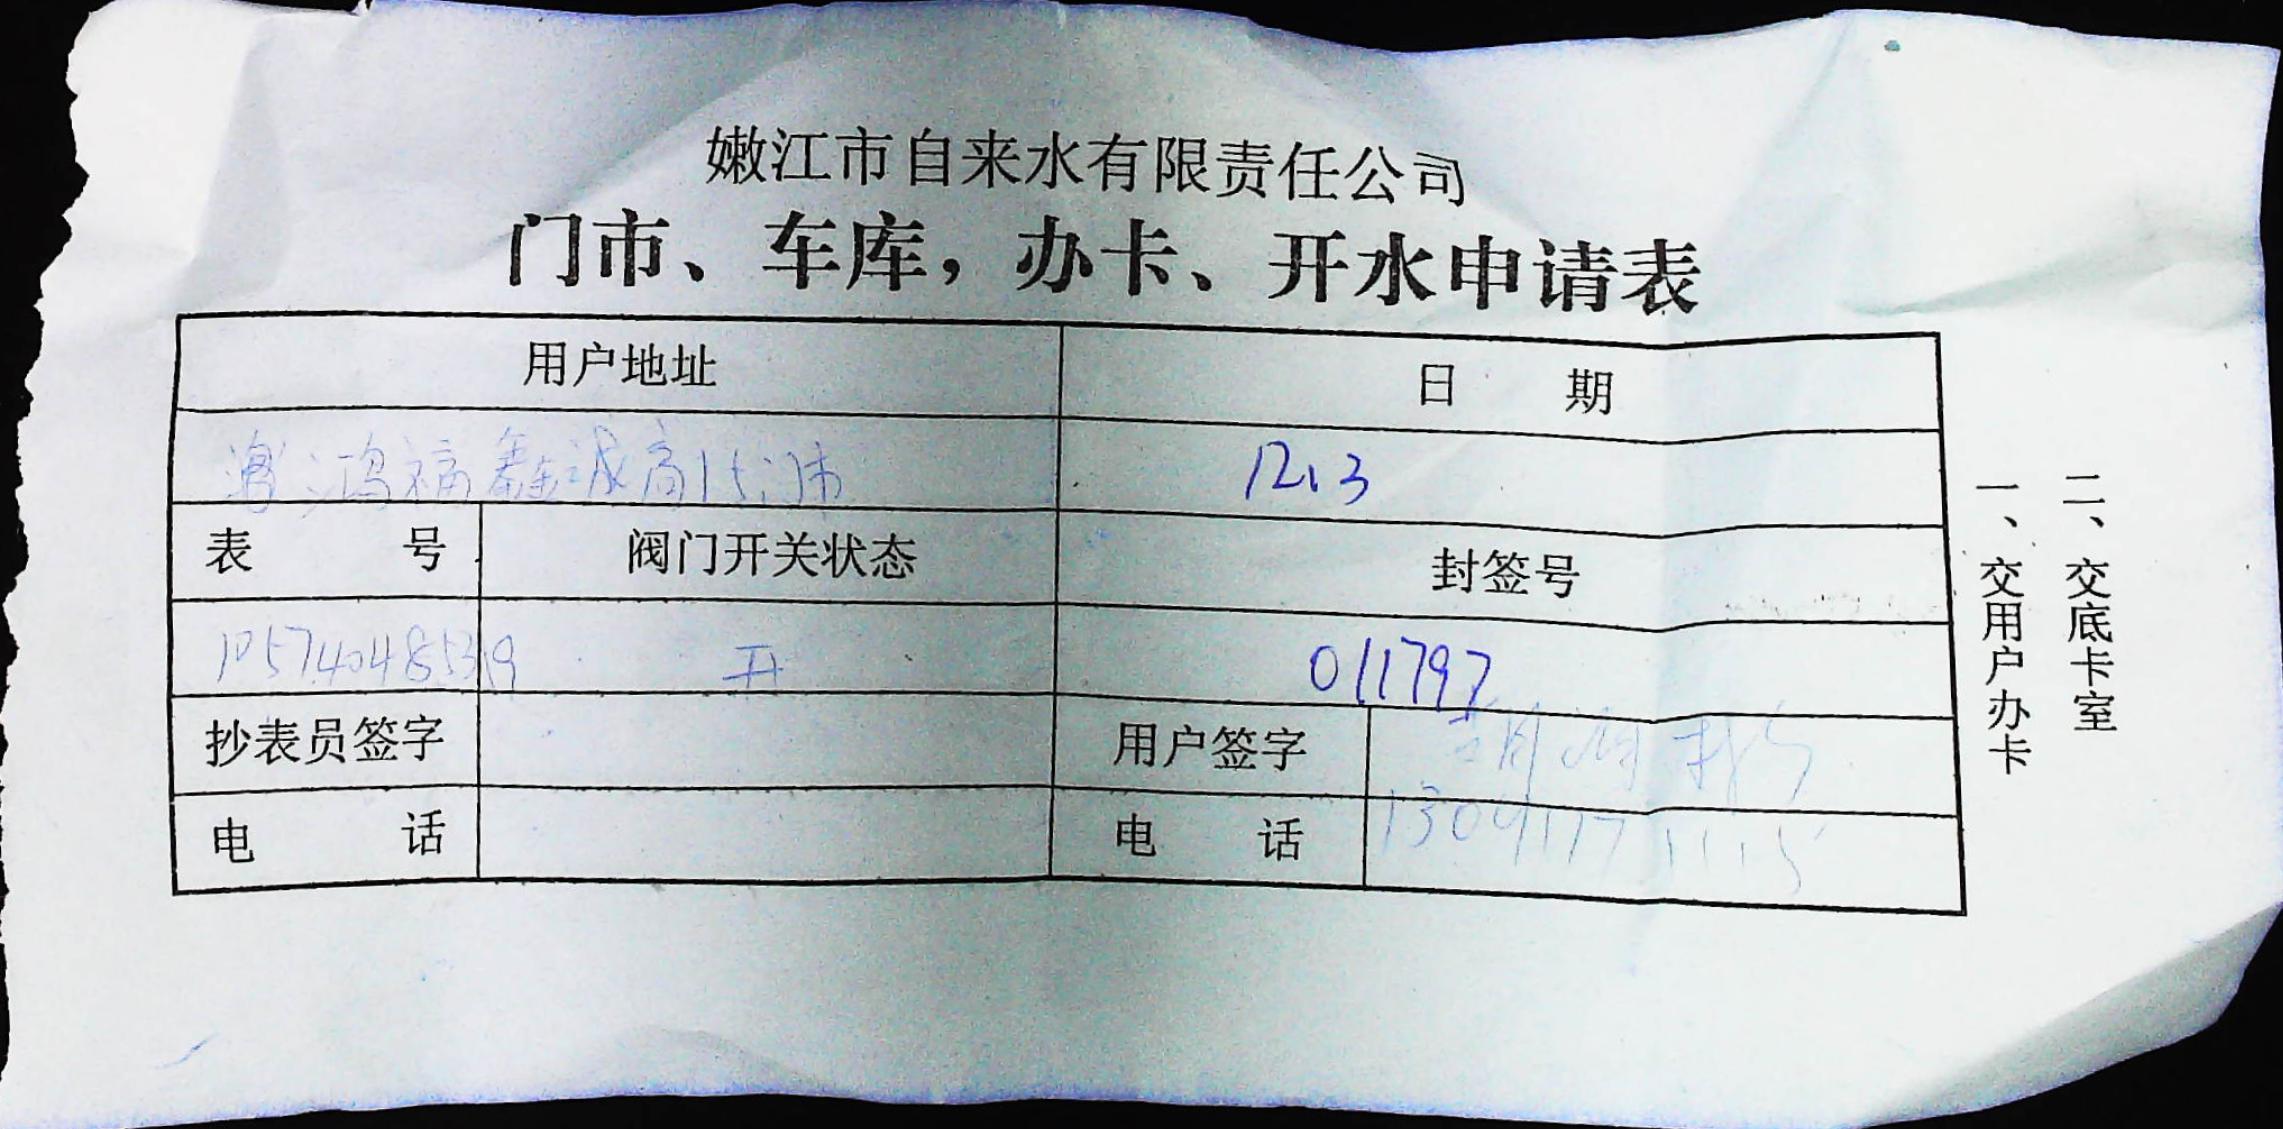 嫩江市自来水有限责任公司
门市、车库，办卡、开水申请表
用户地址 日 期
鸿福鑫诚高15门市 12.3
表 号 阀门开关状态 封签号
开 011797
抄表员签字 用户签字
电 话 电 话
一、交用户办卡
二、交底卡室